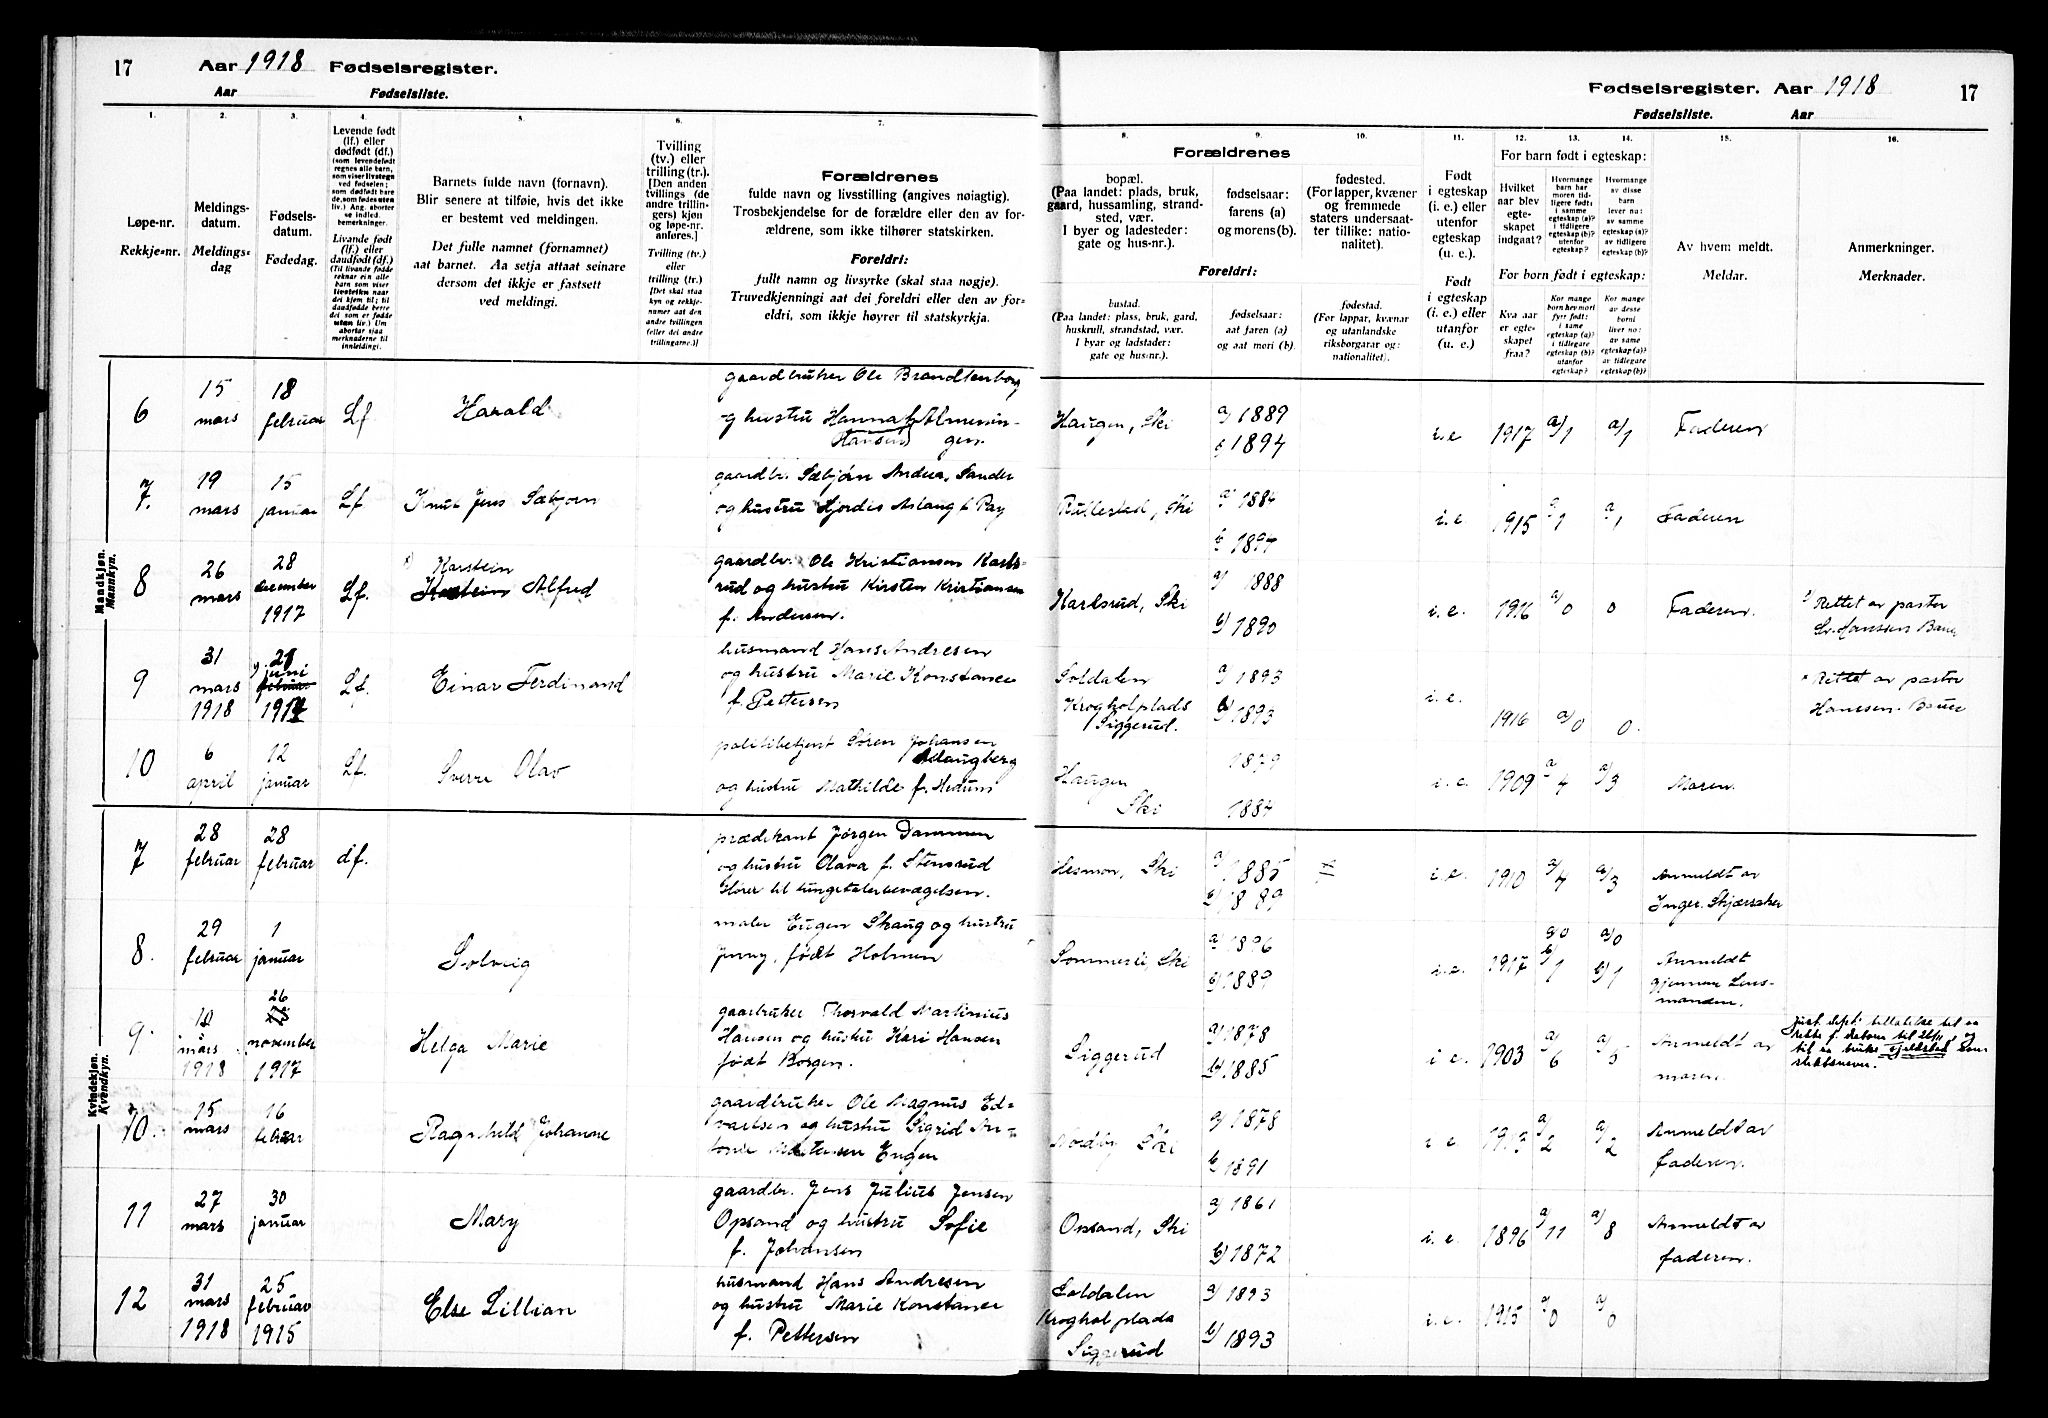 17 Aar 1918 Fødselsregister.
Aar Fødselsliste.
Fødselsregister. Aar 1918 17
Fødselsliste. Aar
1. 2. 3. 4. 5. 6. 7.
8. 9. 10. 11. 12. 13. 14. 15. 16.
Løpe-nr.
Rekkje-nr.
Meldings-
datum.
Meldings-
dag
Fødsels-
datum.
Fødedag.
Levende født
(lf.) eller
dødfødt (df.)
(som levendefødt
regnes alle barn,
som viser livstegn
ved fødselen;
som dødfødt bare
de, som fødes uten
liv.) Ang. aborter
se indled.
bemerkninger.
Livande født
(lf.) eller
daudfødt (df.)
(Til livande fødde
reknar ein alle
barn som viser
livsteikn naar
dei kjem til; til
daudfødde berre
dei som er fødde
utan liv.) Um
abortar sjaa
merknaderne til
innleidingi.
Barnets fulde navn (fornavn).
Blir senere at tilføie, hvis det ikke
er bestemt ved meldingen.
Det fulle namnet (fornamnet)
aat barnet. Aa setja attaat seinare
dersom det ikkje er fastsett
ved meldingi.
Tvilling
(tv.) eller
trilling (tr.).
[Den anden
tvillings (de
andre trillin-
gers) kjøn
og løpe-nr.
anføres.]
Tvilling (tv.)
eller
trilling (tr.)
[Det skal staa
kyn og rekkje-
numer aat den
andre tvillingen
(eller dei andre
trillingarne.)]
Forældrenes
fulde navn og livsstilling (angives nøiagtig).
Trosbekjendelse for de forældre eller den av for-
ældrene, som ikke tilhører statskirken.
Foreldri:
fullt namn og livsyrke (skal staa nøgje).
Truvedkjenningi aat dei foreldri eller den av for-
eldri, som ikkje høyrer til statskyrkja.
Forældrenes
bopæl.
(Paa landet: plads, bruk,
gaard, hussamling, strand-
sted, vær.
I byer og ladesteder:
gate og hus-nr.).
fødselsaar:
farens (a)
og morens (b).
fødested.
(For lapper, kvæner
og fremmede
staters undersaat-
ter tillike: natio-
nalitet).
Foreldri:
bustad.
(Paa landet: plass, bruk, gard,
huskrull, strandstad, vær.
I byar og ladstader:
gate og hus-nr.).
fødselsaar:
aat faren (a)
og aat mori (b).
fødestad.
(For lappar, kvænar
og utanlandske
riksborgarar og:
nationalitet).
Født
i egteskap
(i. e.) eller
utenfor
egteskap
(u. e.).
Født
i egteskap
(i. e.) eller
utanfor
(u. e.).
For barn født i egteskap:
Hvilket
aar blev
egte-
skapet
indgaat?
Hvormange
barn har
moren tid-
ligere født:
i samme
egteskap (a)?
i tidligere
egteskap (b)?
utenfor
egteskap?
Hvormange
av disse
barn
lever nu:
av samme
egteskap (a)?
av tidligere
egteskap (b)?
For born født i egteskap:
Kva aar
er egte-
skapet
fraa?
Kor mange
born hev mori
fyrr født:
i same
egteskap (a)?
i tidlegare
egteskap (b)?
utanfor
egteskap?
Kor mange
av desse
borni
liver no:
av same
egteskap (a)?
av tidlegare
egteskap (b)?
Av hvem meldt.
Meldar.
Anmerkninger.
Merknader.
Mandkjøn.
Mannkyn.
6 15 mars 18 februar Lf Harald
gaardbruker Ole Brandtenborg
og hustru Hanna f. Almerin-
(Hansen) gen.
Haugen, Ski a/ 1889 b/ 1894 i.e 1917 a/1 a/1 Faderen
7. 19 mars 15 januar Lf Knut Jens Sæbjørn
gaardbr. Sæbjørn Andreas Sander
og hustru Hjordis Aslaug f. Pay
Rullestad, Ski a 1884 b 1897 i.e. 1915 a/1 a/1 Faderen
8 26 mars 28 desember 1917 Lf. Karstein
Alfred
gaardbr. Ole Kristiansen Karls-
rud og hustru Kirsten Kristiansen
f. Andersen.
Karlsrud, Ski a/ 1888 b/ 1890 i.e. 1916 a/0 0 Faderen.
Rettet av pastor
Hanssen Bauer
9 31 mars 1918 21 juni februar 1917 Lf. Einar Ferdinand
husmand Hans Andresen
og hustru Marie Konstance
f. Pettersen
Soldalen
Krogholplads
Siggerud. a/ 1893 b/ 1893 i.e. 1916 a/0 0.
Rettet av pastor
Hanssen-Bauer
10 6 april 12 januar Lf. Sverre Olav
politibetjent Søren Johansen
Aslaugberg
og hustru Mathilde f. Hedum
Haugen
Ski 1879 1884 i.e. 1909 a/4 a/3 Moren.
Kvindekjøn.
Kvendkyn.
7 28 februar 28 februar df.
prædikant Jørgen Dammen
og hustru Olava f. Stensrud
Hører til tungetalerbevægelsen.
Hesmon, Ski a/ 1885 b/ 1889 i.e. 1910 a/4 a/3 Anmeldt av
Inger Skjørsaker
8. 29 februar 1 januar Solveig
maler Eugen Skaug og hustru
Jenny, født Holmen
Sommerli, Ski a/ 1896 b/ 1889 i.e. 1917 a/0 b/1 a/0 b/1 Anmeldt
gjennem Lens-
manden.
9. 10 mars 1918 26 november 1917 Helga Marie
gaarbruker Thorvald Martinius
Hansen og hustru Kari Hansen
født Borgen.
Siggerud a/ 1878 b/ 1885 i e. 1903 a/6 a/5 Anmeldt av
moren.
Just. dept. tillatelse til aa
rette f. datoen til 26/11 og
til aa bruke som
slektsnavn.
10. 15 mars 16 februar Ragnhild Johanne
gaardbruker Ole Magnus Ed-
vartsen og hustru Sigrid An-
tonie Engen
Nordby Ski a/ 1878 b/ 1891 i e. 1913 a/2 a/2 Anmeldt av
faderen.
11 27 mars 30 januar Mary
gaardbr. Jens Julius Jensen
Opsand og hustru Sofie
f. Johansen
Opsand, Ski a/ 1861 b/ 1872 i. e. 1896 a/11 a/8 Anmeldt av
faderen.
12 31 mars 1918 25 februar 1915 Else Lillian
husmand Hans Andresen
og hustru Marie Konstance
f. Pettersen
Soldalen
Kroghol plads
Siggerud a/ 1893 b/ 1893 i.e. 1915 a/0 a/0